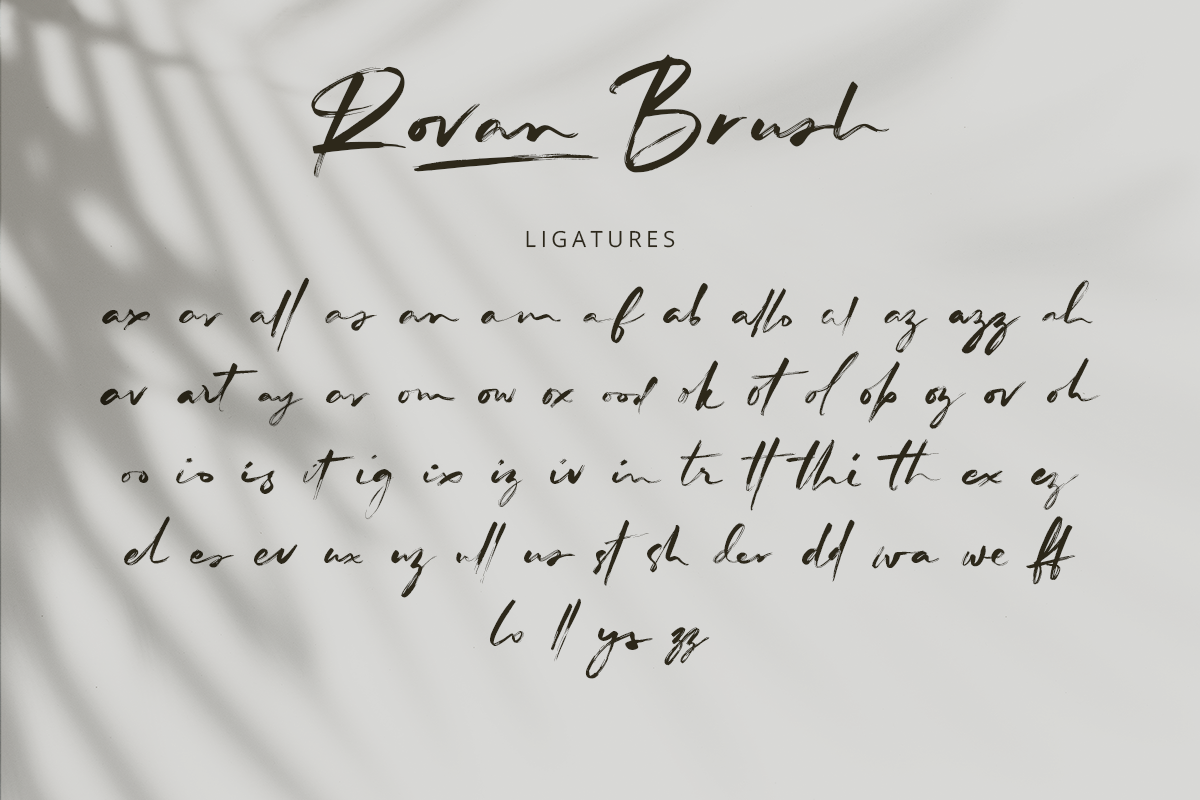 Rovan Brush
LIGATURES
ax ar all as an am af ab allo al az azz ah
av art ay ar om ow ox ood ok ot ol ob oz ov oh
oo io is it ig ix iz iv in tr tt thi th ex ez
el es ev ux uz ull us st sh der dd wa we ff
lo ll ys zz